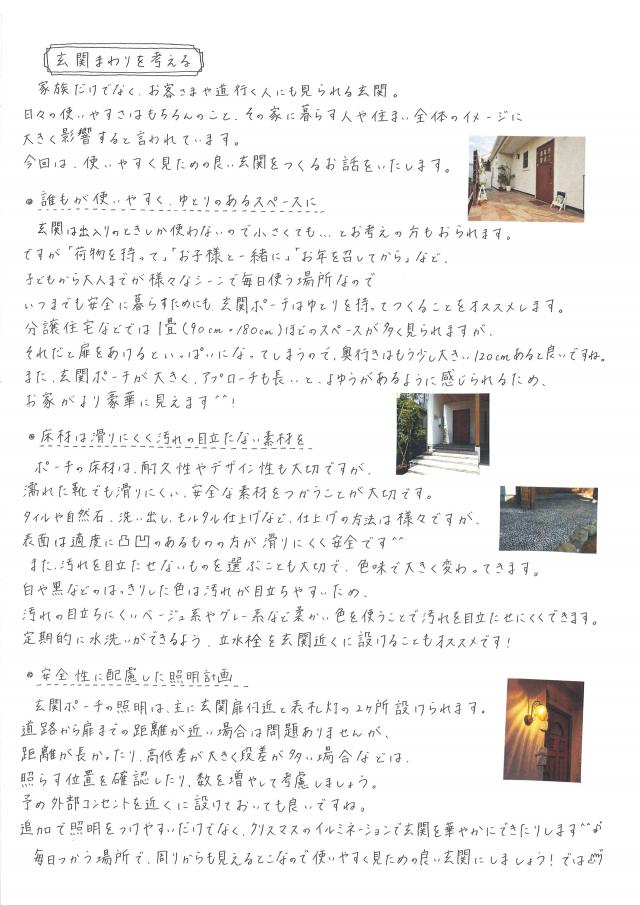 玄関まわりを考える
家族だけでなく、お客さまや道行く人にも見られる玄関。
日々の使いやすさはもちろんのこと、その家に暮らす人や住まい全体のイメージに
大きく影響すると言われています。
今回は、使いやすく見ための良い玄関をつくるお話をいたします。
◎誰もが使いやすく、ゆとりのあるスペースに
玄関は出入りのときしか使わないので小さくても…とお考えの方もおられます。
ですが「荷物を持って」「お子様と一緒に」「お年を召してから」など、
子どもから大人までが様々なシーンで毎日使う場所なので
いつまでも安全に暮らすためにも、玄関ポーチはゆとりを持ってつくることをオススメします。
分譲住宅などでは1畳(90cm×180cm)ほどのスペースが多く見られますが、
それだと扉をあけるといっぱいになってしまうので、奥行きはもう少し大きい120cmあると良いですね。
また、玄関ポーチが大きく、アプローチも長いと、よゆうがあるように感じられるため、
お家がより豪華に見えます^^!
◎床材は滑りにくく汚れの目立たない素材を
ポーチの床材は、耐久性やデザイン性も大切ですが、
濡れた靴でも滑りにくい、安全な素材をつかうことが大切です。
タイルや自然石、洗い出し、モルタル仕上げなど、仕上げの方法は様々ですが、
表面は適度に凸凹のあるものの方が滑りにくく安全です^^
また、汚れを目立たせないものを選ぶことも大切で、色味で大きく変わってきます。
白や黒などのはっきりした色は汚れが目立ちやすいため、
汚れの目立ちにくいベージュ系やグレー系など柔かい色を使うことで汚れを目立たせにくくできます。
定期的に水洗いができるよう、立水栓を玄関近くに設けることもオススメです!
◎安全性に配慮した照明計画
玄関ポーチの照明は、主に玄関扉付近と表札灯の2ヶ所設けられます。
道路から扉までの距離が近い場合は問題ありませんが、
距離が長かったり、高低差が大きく段差が多い場合などは、
照らす位置を確認したり、数を増やして考慮しましょう。
予め外部コンセントを近くに設けておいても良いですね。
追加で照明をつけやすいだけでなく、クリスマスのイルミネーションで玄関を華やかにできたりします^^♪
毎日つかう場所で、周りからも見えるとこなので使いやすく見ための良い玄関にしましょう!では